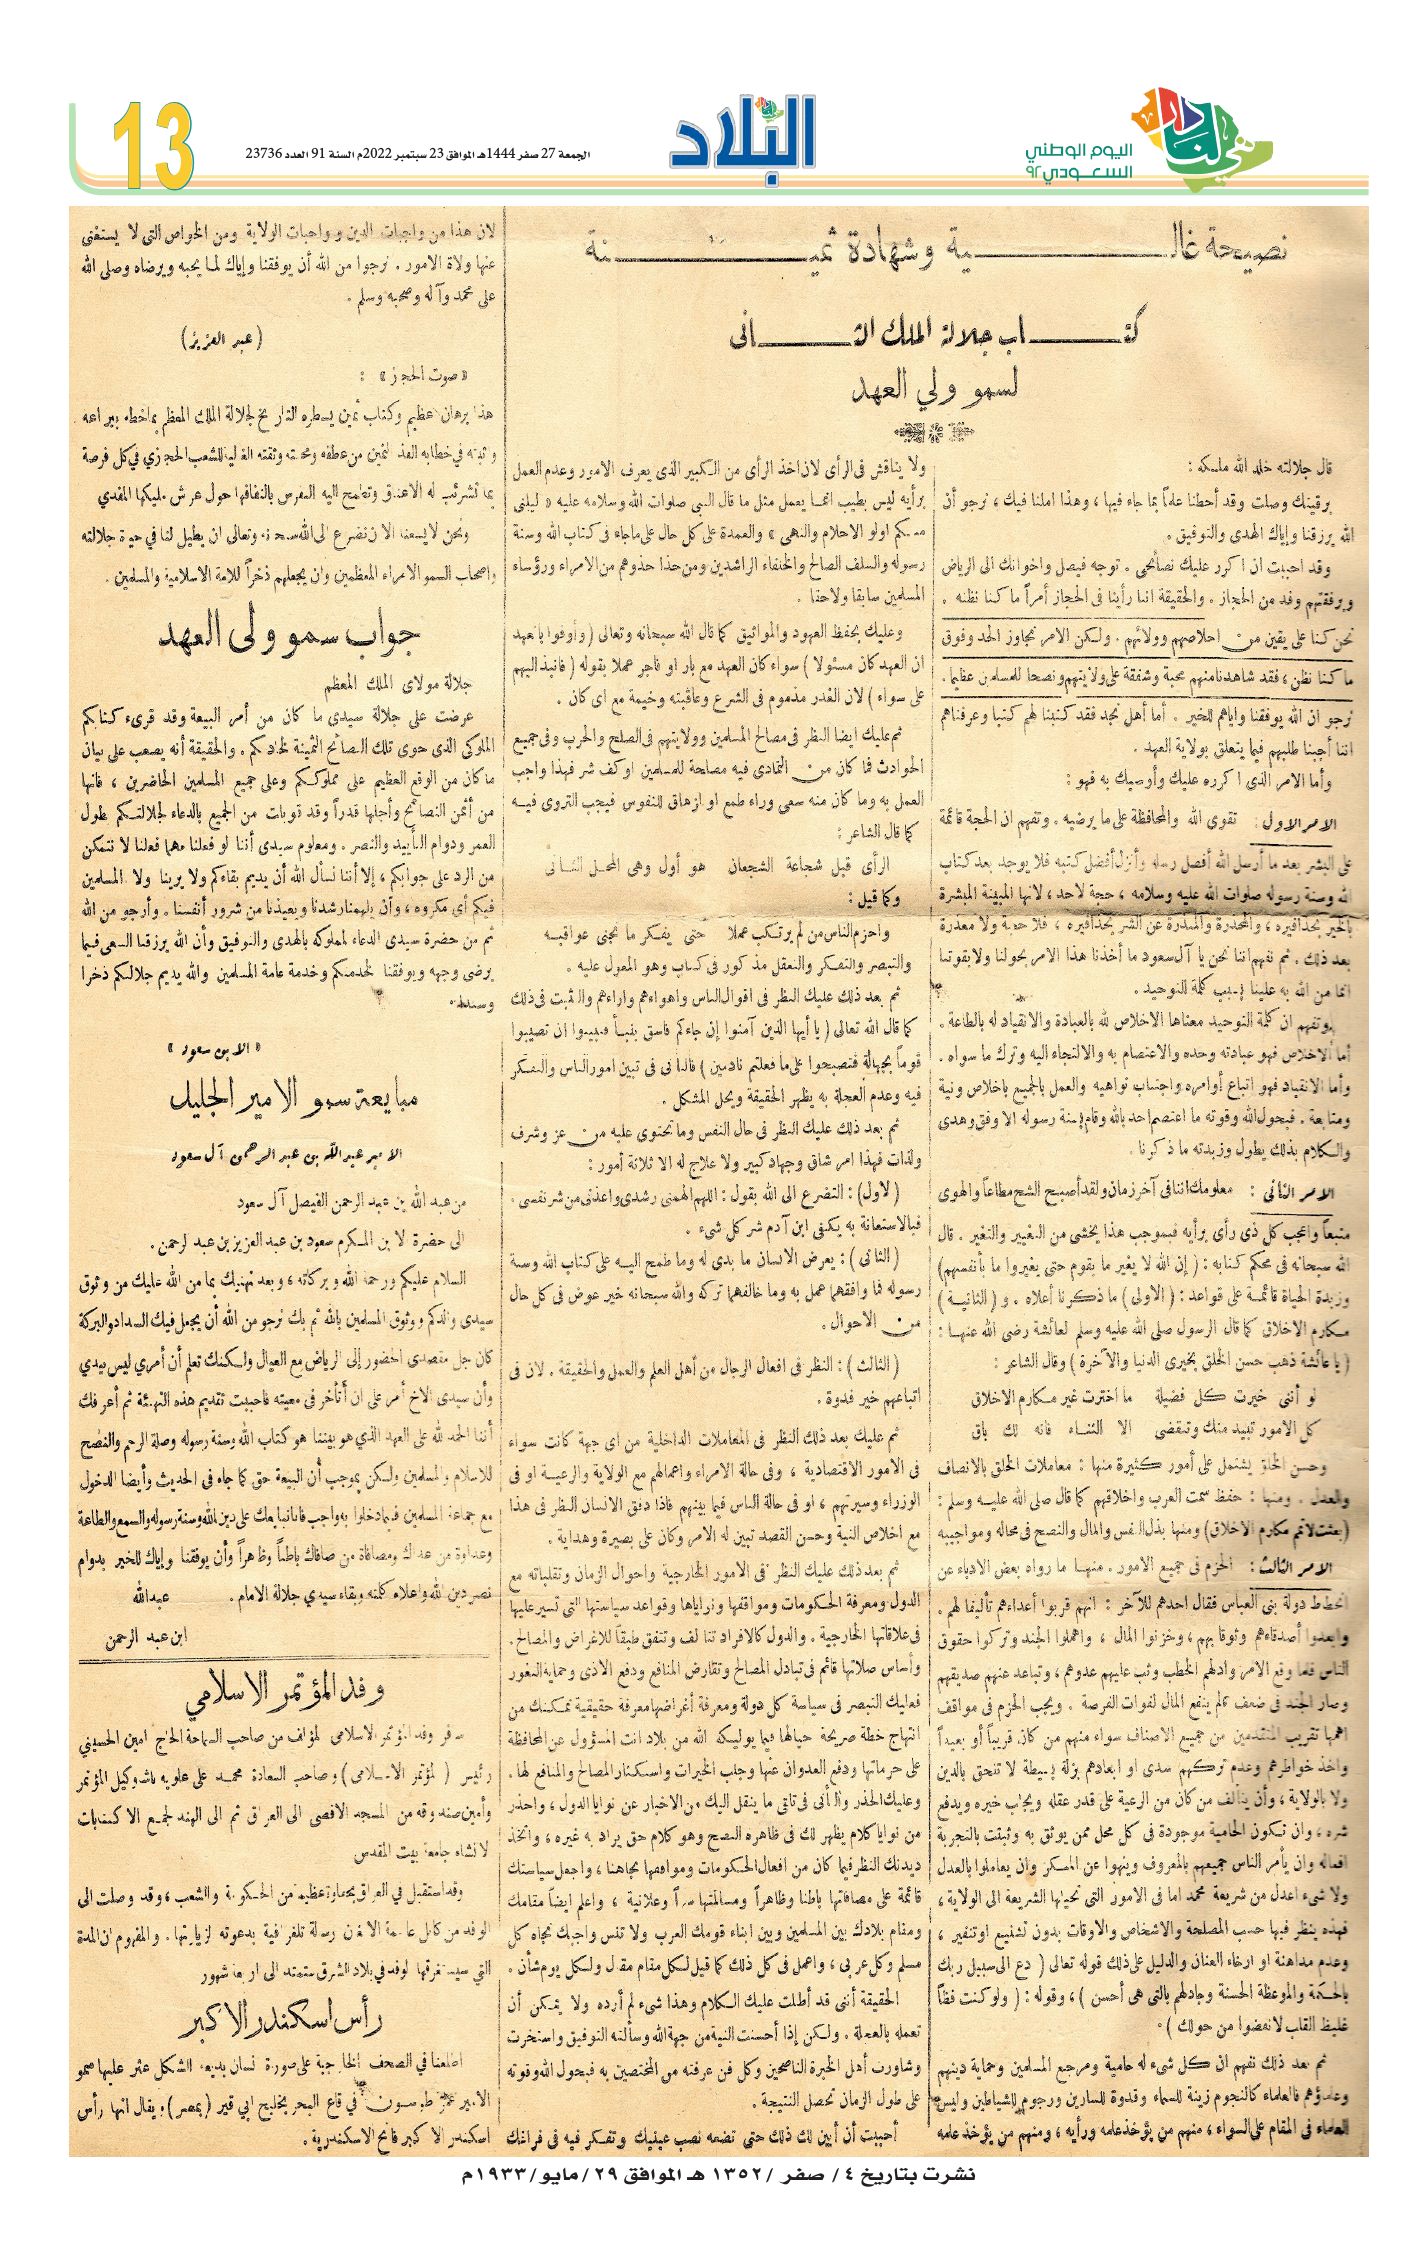 هي لنا دار
اليوم الوطني
السعودي ٩٢
البلاد
الجمعة 27 صفر 1444هـ الموافق 23 سبتمبر 2022م السنة 91 العدد 23736
13
نصيحة غالية وشهادة ثمينة
كتاب جلالة الملك الثاني
لسمو ولي العهد
قال جلالته خلد الله ملكه :
برقيتك وصلت وقد أحطنا علماً بما جاء فيها ، وهذا املنا فيك ، نرجو أن
الله يرزقنا وإياك الهدى والتوفيق .
وقد احببت ان اكرر عليك نصائحى . توجه فيصل واخوانك الى الرياض
وبرفقتهم وفد من الحجاز . والحقيقة اننا رأينا فى الحجاز أمراً ما كنا نظنه .
نحن كنا على يقين من اخلاصهم وولائهم . ولكن الامر تجاوز الحد وفوق
ما كنا نظن ، فقد شاهدنا منهم محبة وشفقة على ولايتهم ونصحا للمسلمين عظيما .
نرجو ان الله يوفقنا واياهم للخير . أما أهل نجد فقد كتبنا لهم كتبا وعرفناهم
اننا أجبنا طلبهم فيما يتعلق بولاية العهد .
وأما الامر الذى اكرره عليك وأوصيك به فهو :
الامر الاول : تقوى الله والمحافظة على ما يرضيه . وتفهم ان الحجة قائمة
على البشر بعد ما أرسل الله أفضل رسله وأنزل أفضل كتبه فلا يوجد بعد كتاب
الله وسنة رسوله صلوات الله عليه وسلامه ، حجة لاحد ، لانها المبينة المبشرة
بالخير بحذافيره ، والمحذرة والمنذرة عن الشر بحذافيره ، فلا حجة ولا معذرة
بعد ذلك . ثم تفهم اننا نحن يا آل سعود ما أخذنا هذا الامر بحولنا ولا بقوتنا
انما من الله به علينا بسبب كلمة التوحيد .
وتفهم ان كلمة التوحيد معناها الاخلاص لله بالعبادة والانقياد له بالطاعة .
أما الاخلاص فهو عبادته وحده والاعتصام به والالتجاء اليه وترك ما سواه .
وأما الانقياد فهو اتباع أوامره واجتناب نواهيه والعمل بالجميع باخلاص ونية
ومتابعة . فبحول الله وقوته ما اعتصم احد بالله وقام بسنة رسوله الا وفق وهدى
والكلام بذلك يطول وزبدته ما ذكرنا .
الامر الثانى : معلومك اننا فى آخر زمان ولقد أصبح الشح مطاعاً والهوى
متبعاً واعجب كل ذى رأى برأيه فبموجب هذا يخشى من التغيير والتغير . قال
الله سبحانه فى محكم كتابه : ( إن الله لا يغير ما بقوم حتى يغيروا ما بأنفسهم)
وزبدة الحياة قائمة على قواعد : ( الاولى ) ما ذكرنا أعلاه . و ( الثانية )
مكارم الاخلاق كما قال الرسول صلى الله عليه وسلم لعائشة رضى الله عنها :
( يا عائشة ذهب حسن الخلق بخيرى الدنيا والآخرة ) وقال الشاعر :
لو أننى خيرت كل فضيلة ما اخترت غير مكارم الاخلاق
كل الامور تبيد منك وتنقضى الا الثناء فانه لك باق
وحسن الخلق يشتمل على أمور كثيرة منها : معاملات الخلق بالانصاف
والعدل . ومنها : حفظ سمت العرب واخلاقهم كما قال صلى الله عليه وسلم :
( بعثت لاتمم مكارم الاخلاق) ومنها بذل النفس والمال والنصح فى محاله ومواجيبه
الامر الثالث : الحزم فى جميع الامور . منها ما رواه بعض الادباء عن
انحطاط دولة بنى العباس فقال احدهم للآخر : انهم قربوا أعداءهم تأليفا لهم .
وابعدوا أصدقاءهم وثوقا بهم ، وخزنوا المال ، واهملوا الجند وتركوا حقوق
الناس فلما وقع الامر وادلهم الخطب وثب عليهم عدوهم ، وتباعد عنهم صديقهم
وصار الجند فى ضعف فلم ينفع المال لفوات الفرصة . ويجب الحزم فى مواقف
اهمها تقريب المتقدمين من جميع الاصناف سواء منهم من كان قريباً أو بعيداً
واخذ خواطرهم وعدم تركهم سدى او ابعادهم بزلة بسيطة لا تتحق بالدين
ولا بالولاية ، وأن يتألف من كان من الرعية على قدر عقله ويجلب خيره ويدفع
شره ، وان تكون الحامية موجودة فى كل محل ممن يوثق به وثبتت بالتجربة
افعاله وان يأمر الناس جميعهم بالمعروف وينهوا عن المنكر وان يعاملوا بالعدل
ولا شىء اعدل من شريعة محمد اما فى الامور التى تحيلها الشريعة الى الولاية ،
فهذه ينظر فيها حسب المصلحة والاشخاص والاوقات بدون تشنيع او تنفير ،
وعدم مداهنة او ارخاء العنان والدليل على ذلك قوله تعالى ( ادع الى سبيل ربك
بالحكمة والموعظة الحسنة وجادلهم بالتى هى أحسن ) ، وقوله : ( ولو كنت فظاً
غليظ القلب لانفضوا من حولك ) .
ثم بعد ذلك تفهم ان كل شىء له حامية ومرجع المسلمين وحماية دينهم
وعلماؤهم فالعلماء كالنجوم زينة للسماء وقدوة للسارين ورجوم للشياطين وليس
العلماء فى المقام على السواء ، منهم من يؤخذ علمه ورأيه ، ومنهم من يؤخذ علمه
ولا يناقش فى الرأى لان اخذ الرأى من الكبير الذى يعرف الامور وعدم العمل
برأيه ليس بطيب انما يعمل مثل ما قال النبى صلوات الله وسلامه عليه « ليلنى
منكم اولو الاحلام والنهى » والعمدة على كل حال على ما جاء فى كتاب الله وسنة
رسوله والسلف الصالح والخلفاء الراشدين ومن حذا حذوهم من الامراء ورؤساء
المسلمين سابقا ولاحقا .
وعليك بحفظ العهود والمواثيق كما قال الله سبحانه وتعالى ( وأوفوا بالعهد
ان العهد كان مسئولا ) سواء كان العهد مع بار او فاجر عملا بقوله ( فانبذ اليهم
على سواء ) لان الغدر مذموم فى الشرع وعاقبته وخيمة مع اى كان .
ثم عليك ايضا النظر فى مصالح المسلمين وولايتهم فى الصلح والحرب وفى جميع
الحوادث فما كان من التمادى فيه مصلحة للمسلمين او كف شر فهذا واجب
العمل به وما كان منه سعى وراء طمع او ازهاق للنفوس فيجب التروى فيه
كما قال الشاعر :
الرأى قبل شجاعة الشجعان هو أول وهى المحل الثانى
وكما قيل :
واحزم الناس من لم يرتكب عملا حتى يفكر ما تجنى عواقبه
والتبصر والتفكر والتعقل مذكور فى كتاب وهو المعول عليه .
ثم بعد ذلك عليك النظر فى اقوال الناس واهواءهم واراءهم والتثبت فى ذلك
كما قال الله تعالى ( يا أيها الذين آمنوا إن جاءكم فاسق بنبأ فتبينوا ان تصيبوا
قوماً بجهالة فتصبحوا على ما فعلتم نادمين ) فالتأنى فى تبين امور الناس والتفكر
فيه وعدم العجلة به يظهر الحقيقة ويحل المشكل .
ثم بعد ذلك عليك النظر فى حال النفس وما تحتوى عليه من عز وشرف
ولذات فهذا امر شاق وجهاد كبير ولا علاج له الا ثلاثة أمور :
( لاول) : التضرع الى الله بقول : اللهم الهمنى رشدى واعذنى من شر نفسى .
فبالاستعانة به يكفى ابن آدم شر كل شىء .
( الثانى ) : يعرض الانسان ما بدى له وما طمح اليه على كتاب الله وسنة
رسوله فما وافقهما عمل به وما خالفهما تركه والله سبحانه خير عوض فى كل حال
من الاحوال .
( الثالث ) : النظر فى افعال الرجال من أهل العلم والعمل والحقيقة . لان فى
اتباعهم خير قدوة .
ثم عليك بعد ذلك النظر فى المعاملات الداخلية من اى جهة كانت سواء
فى الامور الاقتصادية ، وفى حالة الامراء واعمالهم مع الولاية والرعية او فى
الوزراء وسيرتهم ، او فى حالة الناس فيما بينهم فاذا دقق الانسان النظر فى هذا
مع اخلاص النية وحسن القصد تبين له الامر وكان على بصيرة وهداية .
ثم بعد ذلك عليك النظر فى الامور الخارجية واحوال الزمان وتقلباته مع
الدول ومعرفة الحكومات ومواقفها ونواياها وقواعد سياستها التى تسير عليها
فى علاقاتها الخارجية . والدول كالافراد تتألف وتتفق طبقاً للاغراض والمصالح .
وأساس صلاتها قائم فى تبادل المصالح وتقارض المنافع ودفع الاذى وحماية الثغور
فعليك التبصر فى سياسة كل دولة ومعرفة أغراضها معرفة حقيقية تمكنك من
انتهاج خطة صريحة حيالها فيما يوليكه الله من بلاد انت المسؤول عن المحافظة
على حرماتها ودفع العدوان عنها وجلب الخيرات واستكثار المصالح والمنافع لها .
وعليك الحذر والتأنى فى تلقى ما ينقل اليك من الاخبار عن نوايا الدول ، واحذر
من نوايا كلام يظهر لك فى ظاهره النصح وهو كلام حق يراد به غيره ، واتخذ
ديدنك النظر فيما كان من افعال الحكومات ومواقفها تجاهنا ، واجعل سياستك
قائمة على مصافاتها باطنا وظاهراً ومسالمتها سراً وعلانية ، واعلم ايضاً مقامك
ومقام بلادك بين المسلمين وبين ابناء قومك العرب ولا تنس واجبك تجاه كل
مسلم وكل عربى ، واعمل فى كل ذلك كما قيل لكل مقام مقال ولكل يوم شأن .
الحقيقة أننى قد أطلت عليك الكلام وهذا شىء لم أرده ولا يمكن أن
تعمله بالعجلة . ولكن إذا أحسنت النية من جهة الله وسألته التوفيق واستخرت
وشاورت أهل الخبرة الناصحين وكل فن عرفته من المختصين به فبحول الله وقوته
على طول الزمان تحصل النتيجة .
أحببت أن أبين لك ذلك حتى تضعه نصب عينيك وتفكر فيه فى فراغك
لان هذا من واجبات الدين وواجبات الولاية ومن الخواص التى لا يستغنى
عنها ولاة الامور . نرجوا من الله أن يوفقنا وإياك لما يحبه ويرضاه وصلى الله
على محمد وآله وصحبه وسلم .
(عبد العزيز)
« صوت الحجاز » :
هذا برهان عظيم وكتاب ثمين يسطره التاريخ لجلالة الملك المعظم بما خطه يراعه
وثبته في خطابه الفذ الثمين من عطفه ومحبته وثقته الغالية للشعب الحجازي في كل فرصة
بما تشرئب له الاعناق وتطمح اليه النفوس بالتفافها حول عرش مليكها المفدي
ونحن لا يسعنا الا ان نضرع الى الله سبحانه وتعالى ان يطيل لنا في حياة جلالته
واصحاب السمو الامراء المعظمين وان يجعلهم ذخراً للامة الاسلامية والمسلمين .
جواب سمو ولى العهد
جلالة مولاى الملك المعظم
عرضت على جلالة سيدى ما كان من أمر البيعة وقد قرىء كتابكم
الملوكى الذى حوى تلك النصائح الثمينة لخادمكم . والحقيقة أنه يصعب على بيان
ما كان من الوقع العظيم على مملوككم وعلى جميع المسلمين الحاضرين ، فانها
من أثمن النصائح وأجلها قدراً وقد قوبلت من الجميع بالدعاء لجلالتكم بطول
العمر ودوام التأييد والنصر . ومعلوم سيدى أننا لو فعلنا مهما فعلنا لا نتمكن
من الرد على جوابكم ، إلا أننا نسأل الله أن يديم بقاءكم ولا يرينا ولا المسلمين
فيكم أى مكروه ، وأن يلهمنا رشدنا ويعيذنا من شرور أنفسنا . وأرجو من الله
ثم من حضرة سيدى الدعاء لمملوكه بالهدى والتوفيق وأن الله يرزقنا السعى فيما
يرضى وجهه ويوفقنا لخدمتكم وخدمة عامة المسلمين والله يديم جلالتكم ذخرا
وسندا
« الابن سعود »
مبايعة سمو الامير الجليل
الامير عبد الله بن عبد الرحمن آل سعود
من عبد الله بن عبد الرحمن الفيصل آل سعود
الى حضرة الابن المكرم سعود بن عبد العزيز بن عبد الرحمن .
السلام عليكم ورحمة الله وبركاته ، وبعد تهنيتك بما من الله عليك من وثوق
سيدى والدكم ووثوق المسلمين بالله ثم بك نرجو من الله أن يجعل فيك السداد والبركة
كان جل مقصدى الحضور إلى الرياض مع العيال ولكنك تعلم أن أمري ليس بيدي
وأن سيدى الاخ أمر على ان أتأخر فى معيته فاحببت تقديم هذه التهنئة ثم أعرفك
أننا الحمد لله على العهد الذي هو بيننا هو كتاب الله وسنة رسوله وصلة الرحم والنصح
للاسلام والمسلمين ولكن بموجب أن البيعة حق كما جاء فى الحديث وأيضا الدخول
مع جماعة المسلمين فيما دخلوا به واجب فاننا نبايعك على دين الله وسنة رسوله والسمع والطاعة
وعداوة من عداك ومصافاة من صافاك باطناً وظاهراً وأن يوفقنا وإياك للخير بدوام
نصر دين الله واعلاء كلمته وبقاء سيدي جلالة الامام . عبد الله
ابن عبد الرحمن
وفد المؤتمر الاسلامي
سافر وفد المؤتمر الاسلامى المؤلف من صاحب السماحة الحاج امين الحسيني
رئيس ( المؤتمر الاسلامى ) وصاحب السعادة محمد على علوبه باشا وكيل المؤتمر
وأمين صندوقه من المسجد الاقصى الى العراق ثم الى الهند لجمع الاكتتابات
لانشاء جامعة بيت المقدس
وقد استقبل في العراق بحفاوة عظيمة من الحكومة والشعب ، وقد وصلت الى
الوفد من كابل عاصمة الافغان رسالة تلغرافية بدعوته لزيارتها . والمفهوم ان المدة
التي سيستغرقها الوفد في بلاد الشرق ستمتد الى اربعة شهور
رأس اسكندر الاكبر
اطلعنا في الصحف الخارجية على صورة انسان بديعة الشكل عثر عليها سمو
الامير عمر طوسون في قاع البحر بخليج ابي قير ( بمصر ) ، يقال انها رأس
اسكندر الاكبر فاتح الاسكندرية .
نشرت بتاريخ ٤/ صفر /١٣٥٢ هـ الموافق ٢٩/ مايو/١٩٣٣م